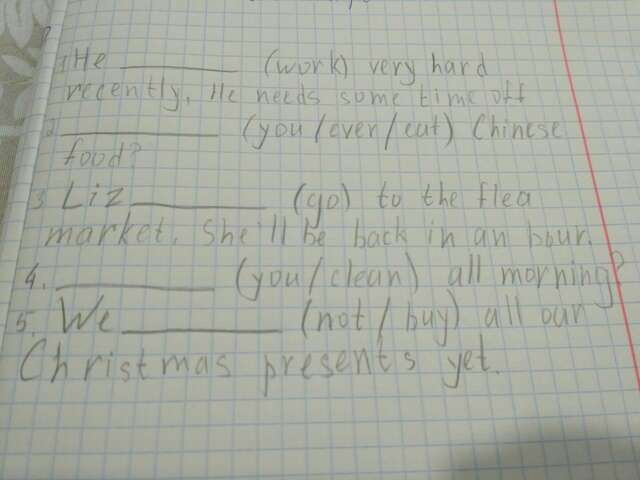 1. He ________ (work) very hard
recently. He needs some time off
2. ________ (you/ever/eat) Chinese
food?
3. Liz ________ (go) to the flea
market. She'll be back in an hour.
4. ________ (you/clean) all morning?
5. We ________ (not/buy) all our
Christmas presents yet.